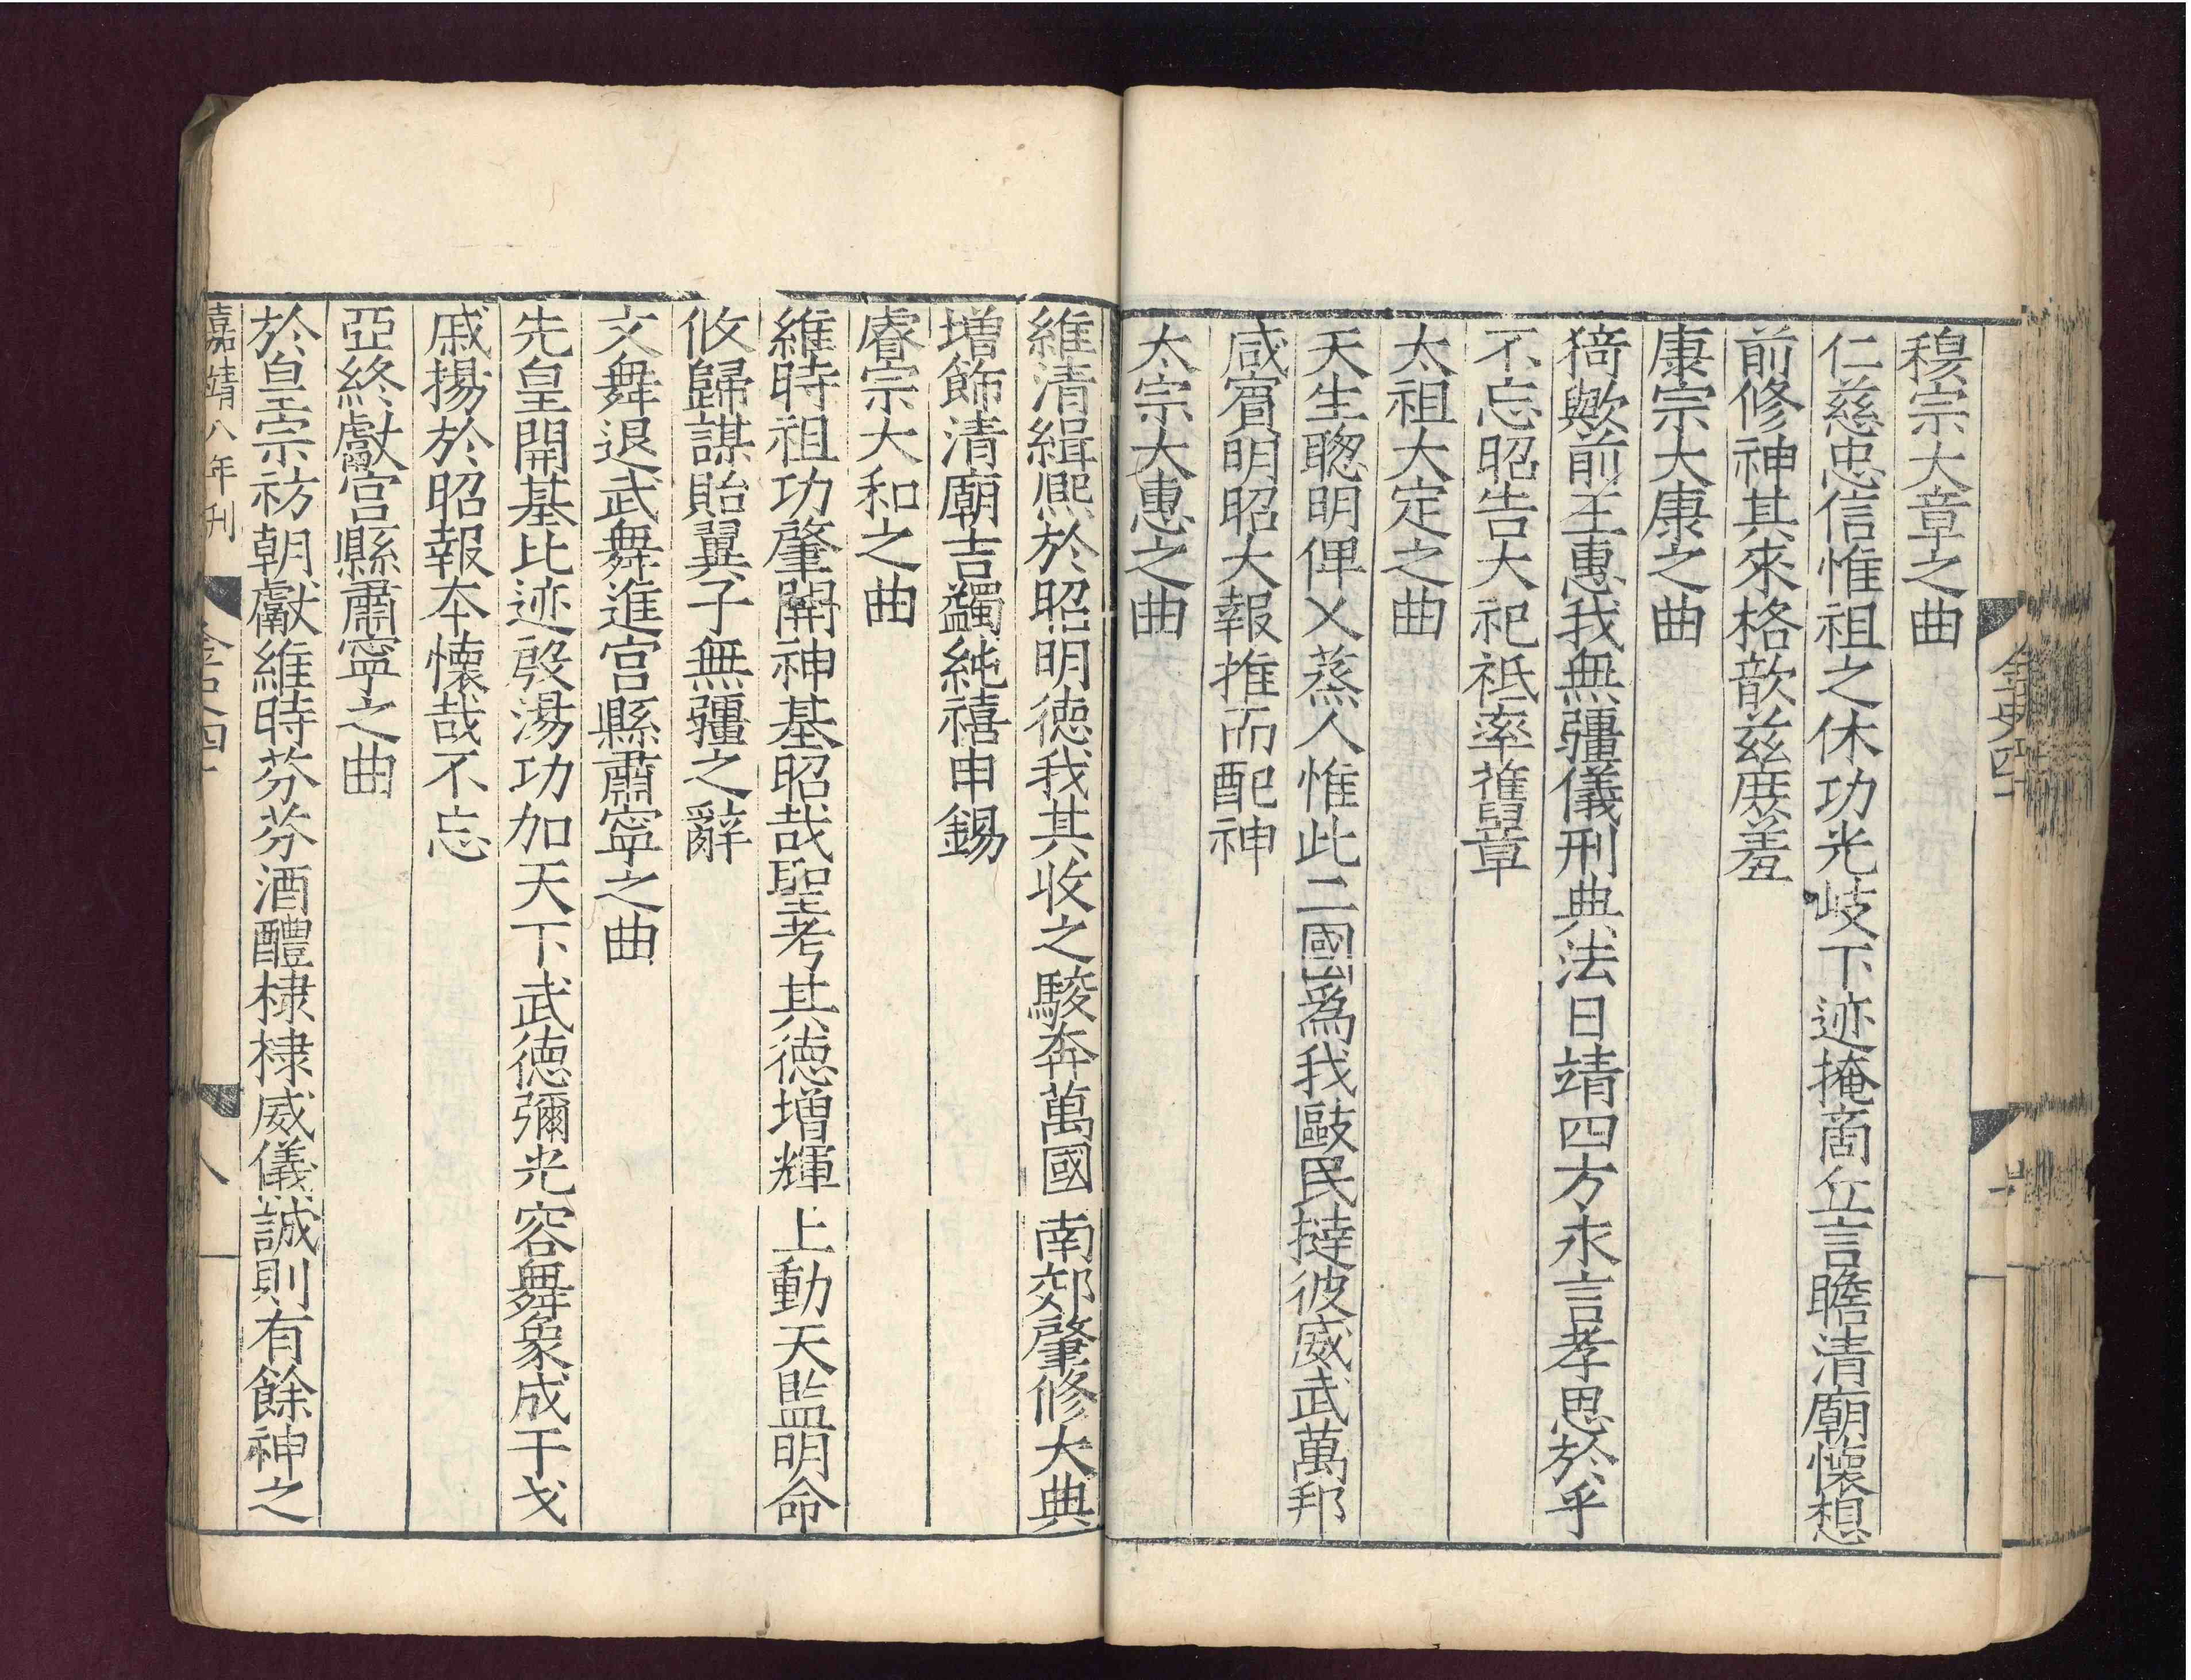 穆宗大章之曲
仁慈忠信惟祖之休功光岐下迹掩商丘言瞻清廟懷想
前修神其來格歆兹庶羞
康宗大康之曲
猗歟前王惠我無疆儀刑典法日靖四方永言孝思於乎
不忘昭告大祀祗率舊章
太祖大定之曲
天生聦明俾乂蒸人惟此二國爲我敺民撻彼威武萬邦
咸賔明昭大報推而配神
太宗大惠之曲
維清緝熙於昭明德我其收之駿奔萬國南郊肇修大典
增飾清廟吉蠲純禧申錫
睿宗大和之曲
維時祖功肇開神基昭哉聖考其德增輝上動天監明命
攸歸謀貽翼子無疆之辭
文舞退武舞進宫縣肅寧之曲
先皇開基比迹殷湯功加天下武德彌光容舞象成干戈
戚揚於昭報本懷哉不忘
亞終獻宫縣肅寧之曲
於皇宗祊朝獻維時芬芬酒醴棣棣威儀誠則有餘神之
嘉靖八年刊
金史四十
八